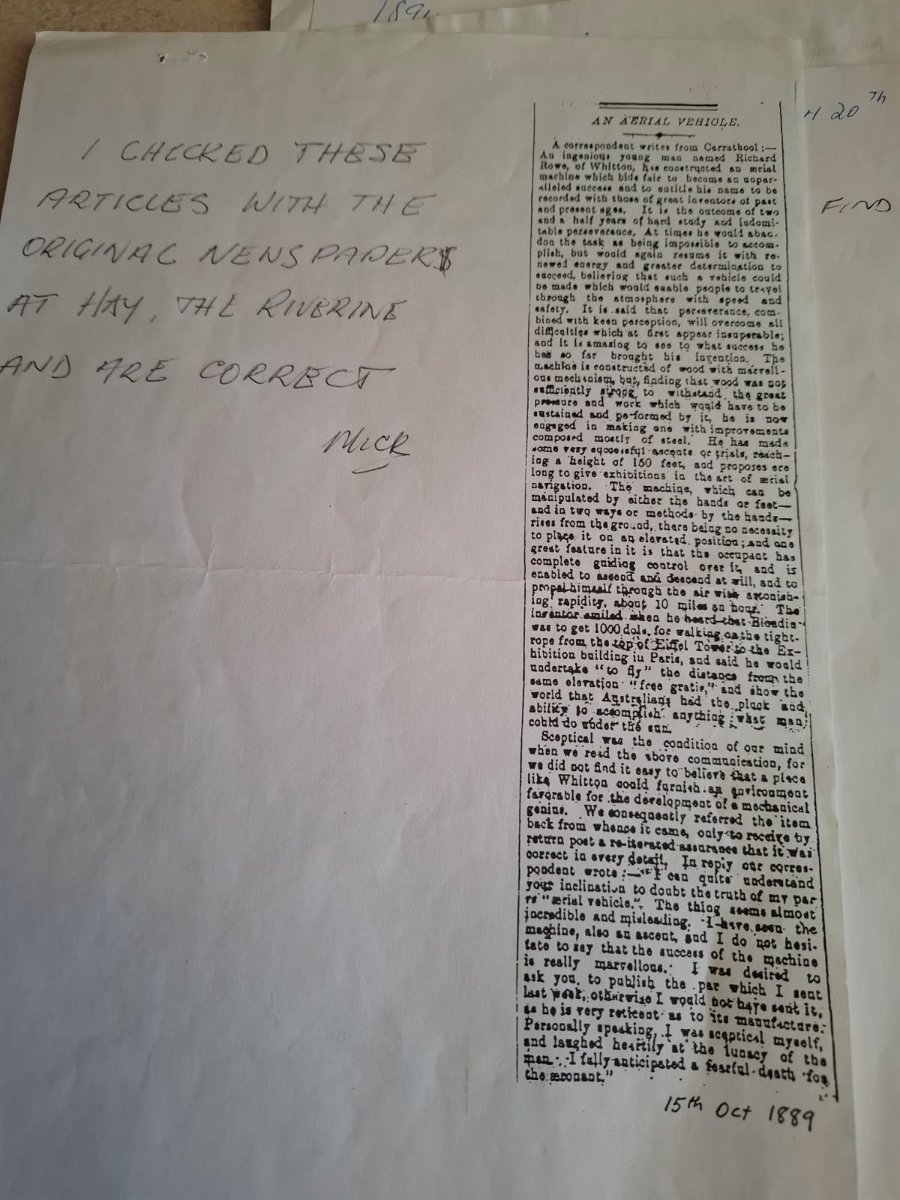 189
I CHECKED THESE
ARTICLES WITH THE
ORIGINAL NEWSPAPERS
AT HAY, THE RIVERINE
AND ARE CORRECT
Mick
AN AERIAL VEHICLE.
A correspondent writes from Carrathool :—
An ingenious young man named Richard
Rowe, of Whitton, has constructed an ærial
machine which bids fair to become an unpar-
alleled success and to entitle his name to be
recorded with those of great inventors of past
and present ages. It is the outcome of two
and a half years of hard study and indomi-
table perseverance. At times he would aban-
don the task as being impossible to accom-
plish, but would again resume it with re-
newed energy and greater determination to
succeed, believing that such a vehicle could
be made which would enable people to travel
through the atmosphere with speed and
safety. It is said that perseverance, com-
bined with keen perception, will overcome all
difficulties which at first appear insuperable;
and it is amazing to see to what success he
has so far brought his invention. The
machine is constructed of wood with marvell-
ous mechanism, but, finding that wood was not
sufficiently strong to withstand the great
pressure and work which would have to be
sustained and performed by it, he is now
engaged in making one with improvements
composed mostly of steel. He has made
some very successful ascents or trials, reach-
ing a height of 150 feet, and proposes ere
long to give exhibitions in the art of ærial
navigation. The machine, which can be
manipulated by either the hands or feet—
and in two ways or methods by the hands—
rises from the ground, there being no necessity
to place it on an elevated position; and one
great feature in it is that the occupant has
complete guiding control over it, and is
enabled to ascend and descend at will, and to
propel himself through the air with astonish-
ing rapidity, about 10 miles an hour. The
inventor smiled when he heard that Blondin
was to get 1000 dols. for walking on the tight-
rope from the top of Eiffel Tower to the Ex-
hibition building in Paris, and said he would
undertake "to fly" the distance from the
same elevation "free gratis," and show the
world that Australians had the pluck and
ability to accomplish anything what man
could do under the sun.
Sceptical was the condition of our mind
when we read the above communication, for
we did not find it easy to believe that a place
like Whitton could furnish an environment
favorable for the development of a mechanical
genius. We consequently referred the item
back from whence it came, only to receive by
return post a re-iterated assurance that it was
correct in every detail. In reply our corres-
pondent wrote :—"I can quite understand
your inclination to doubt the truth of my par
re "ærial vehicle." The thing seems almost
incredible and misleading. I have seen the
machine, also an ascent, and I do not hesi-
tate to say that the success of the machine
is really marvellous. I was desired to
ask you to publish the par which I sent
last week, otherwise I would not have sent it,
as he is very reticent as to its manufacture.
Personally speaking, I was sceptical myself,
and laughed heartily at the lunacy of the
man. I fully anticipated a fearful death for
the æronaut."
15th Oct 1889
H 20th
FIND